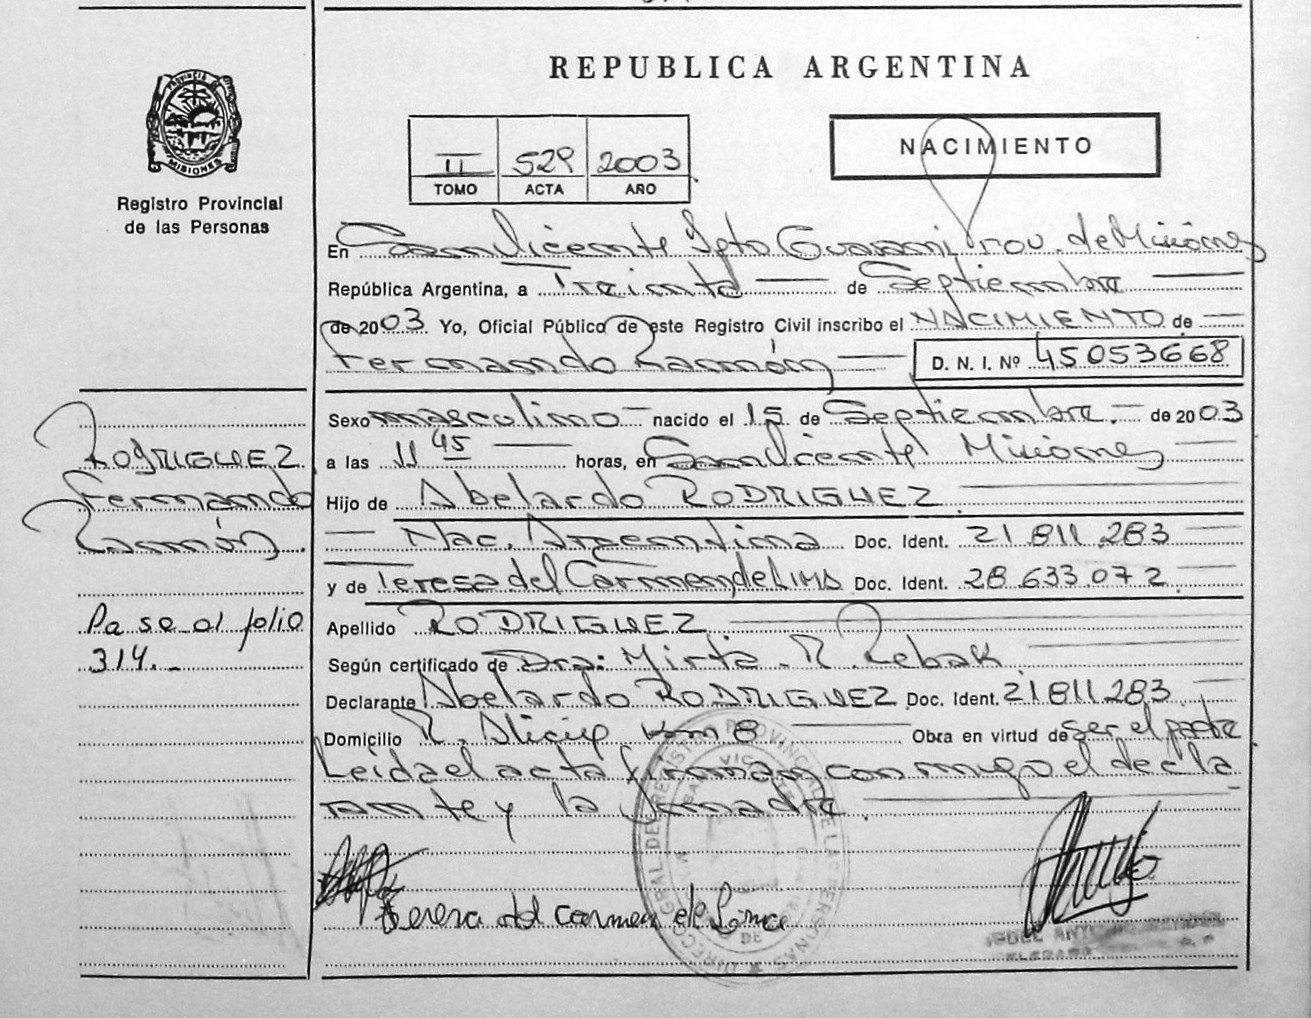 REPUBLICA ARGENTINA
PROVINCIA DE
MISIONES
Registro Provincial
de las Personas
II 529 2003
TOMO ACTA AÑO
NACIMIENTO
En San Vicente Dpto Guaraní, Prov. de Misiones
República Argentina, a Treinta de Septiembre
de 2003. Yo, Oficial Público de este Registro Civil inscribo el NACIMIENTO de
Fernando Ramón D. N. I. Nº 45053668
Sexo masculino nacido el 15 de Septiembre. de 2003
a las 11 45 horas, en San Vicente Misiones
Hijo de Abelardo RODRIGUEZ
Nac. Argentina Doc. Ident. 21 811 283
y de Teresa del Carmen de LIMA Doc. Ident. 28 633 072
Apellido RODRIGUEZ
Según certificado de Dra: Mirta R. Rebak
Declarante Abelardo RODRIGUEZ Doc. Ident. 21 811 283
Domicilio km 8 Obra en virtud de ser el padre
Leida el acta firman conmigo el decla
rante y la madre.
RODRIGUEZ
Fernando
Ramón.
Pase al folio
314.
Teresa del Carmen de Lima
DIRECC. GRAL. DEL REGISTRO PROVINCIAL DE LAS PERSONAS